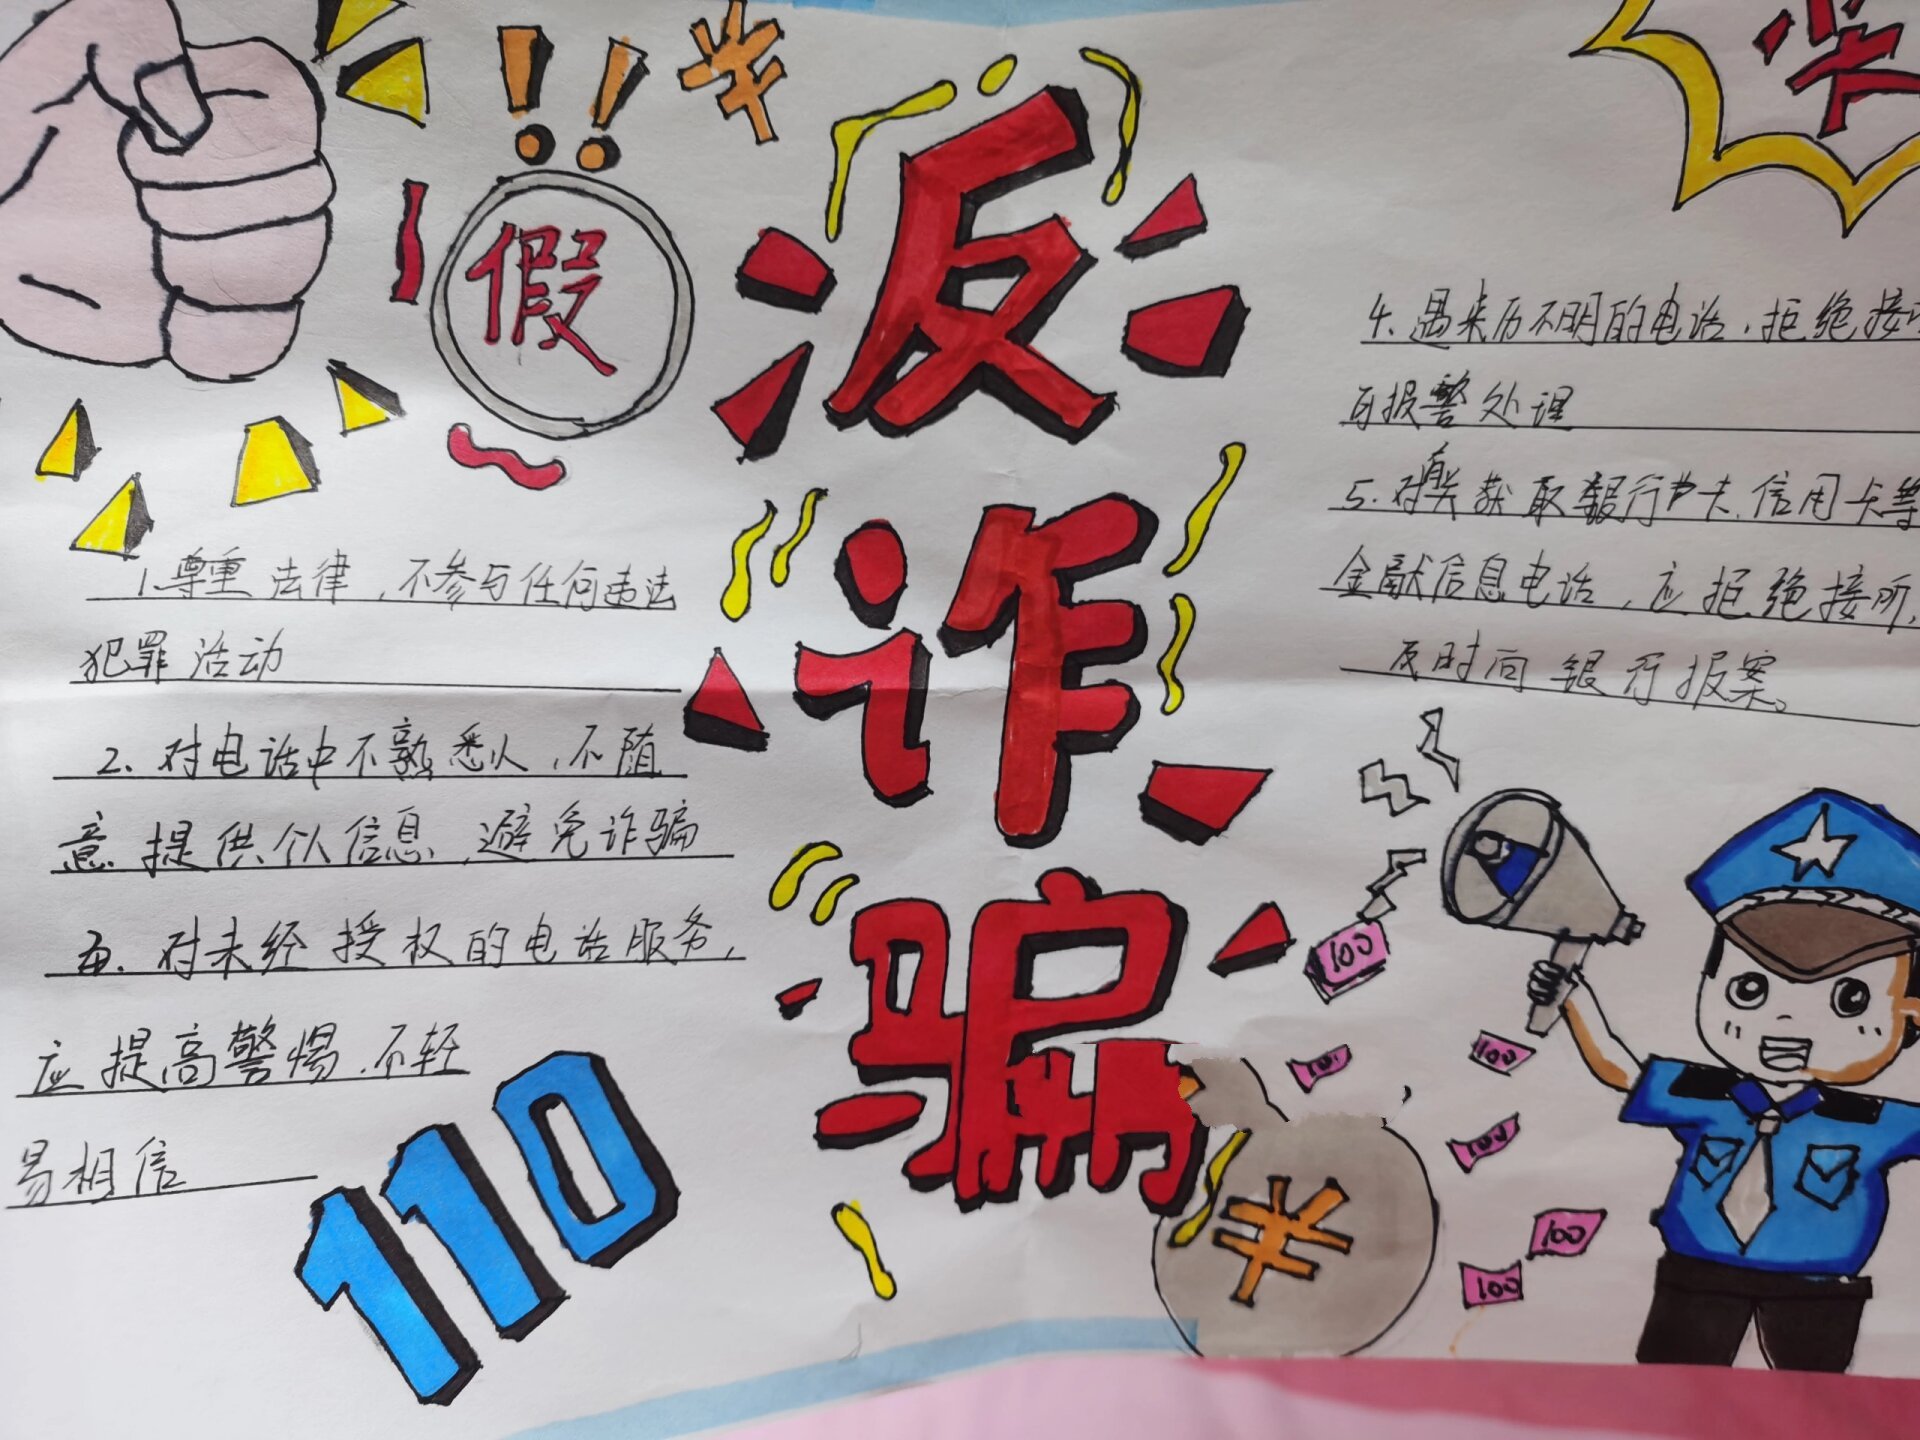 假
反
诈
骗
1.尊重法律,不参与任何违法
犯罪活动
2.对电话中不熟悉人,不随
意提供个人信息,避免诈骗
3.对未经授权的电话服务,
应提高警惕.不轻
易相信
110
4.遇来历不明的电话,拒绝接
报警处理
5.对 获取银行卡.信用卡等
金融信息电话,应拒绝接听,
及时向银行报案。
100
100
100
100
100
100